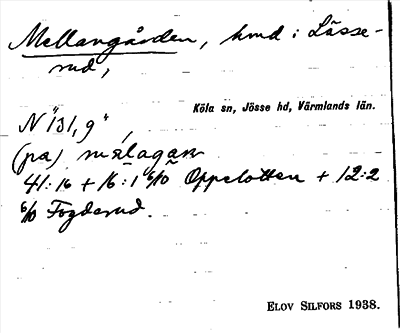 Mellangården, hmd i Lässe-
rud,
Köla sn, Jösse hd, Värmlands län.
N "131,9",
(pa)
41:16 + 16:1 6/10 Oppelotten + 12:2
6/10 Fogderud.
ELOV SILFORS 1938.